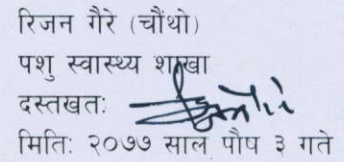 रिजन गैरे (चौंथो)
पशु स्वास्थ्य शाखा
दस्तखतः
मितिः २०७७ साल पौष ३ गते